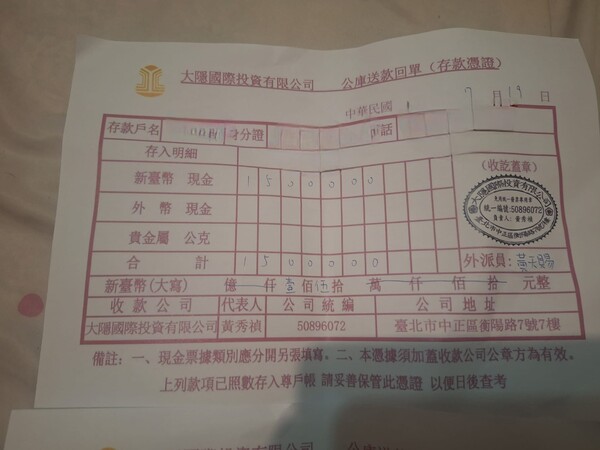 大隱國際投資有限公司 公庫送款回單(存款憑證)
中華民國 7 月 19 日
存款戶名 身分證 話
存入明細 (收訖蓋章)
新臺幣 現金 1500000
外幣 現金
貴金屬 公克
合計 1500000 外派員:
大隱國際投資有限公司
統一編號:50896072
負責人:黃秀禎
臺北市中正區衡陽路7號7樓
新臺幣(大寫) 億 仟 壹 佰 伍 拾 萬 仟 佰 拾 元整
收款公司 代表人 公司統編 公司地址
大隱國際投資有限公司 黃秀禎 50896072 臺北市中正區衡陽路7號7樓
備註:一、現金票據類別應分開另張填寫、二、本憑據須加蓋收款公司公章方為有效。
上列款項已照數存入尊戶帳 請妥善保管此憑證 以便日後查考